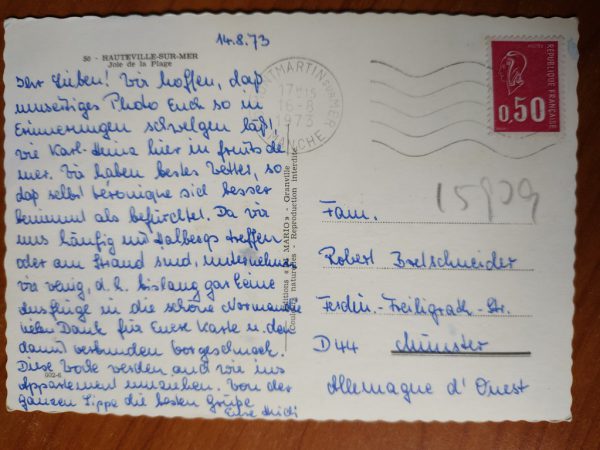 14.8.73
50 - HAUTEVILLE-SUR-MER
Joie de la Plage
Ihr Lieben! Wir hoffen, daß
umseitiges Photo Euch so in
Erinnerungen schwelgen läßt
wie Karl-Heinz hier in fruits de
mer. Wir haben bestes Wetter, so
daß selbst Véronique sich besser
benimmt als befürchtet. Da wir
uns häufig mit Halbergs treffen
oder am Strand sind, unternehmen
wir wenig, d.h. bislang gar keine
Ausflüge in die schöne Normandie
Vielen Dank für Eure Karte u. den
damit verbunden Vorgeschmack.
Diese Woche werden auch wir ins
Appartement umziehen. Von der
ganzen Sippe die besten Grüße
Eure Heidi
602-6
Editions « MARIO » - Granville
Couleurs naturelles - Reproduction interdite
MONTMARTIN SUR MER
17H15
-8
1973
MANCHE
REPUBLIQUE FRANÇAISE
0,50
15909
Fam.
Robert Bretschneider
Ferdin.-Freiligrath-Str.
D44 Münster
Allemagne d'Ouest